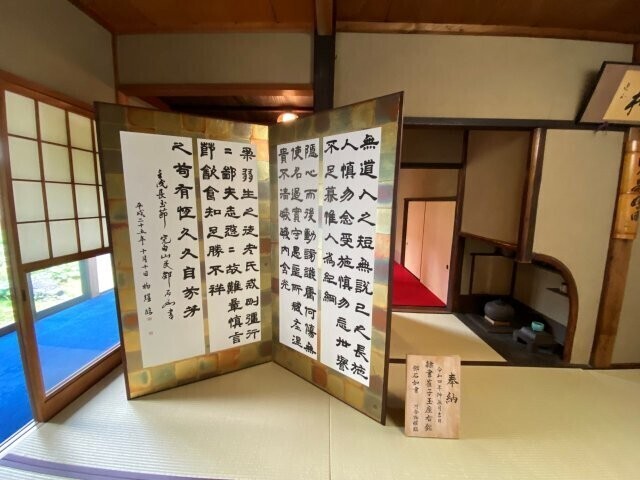 無道人之短無說己之長施
人慎勿念受施慎勿忘世譽
不足慕惟仁為紀綱
隱心而後動謗議庸何傷無
使名過實守愚聖所臧在涅
貴不淄曖曖內含光
柔弱生之徒老氏戒剛彊行
二鄙夫志悠二故難量慎言
節飲食知足勝不祥
之苟有恆久久自芬芳
完白山民鄧石如書
平成二十五年十月十日 臨
奉納
令和四年 吉日
隸書崔子玉座右銘
鄧石如書